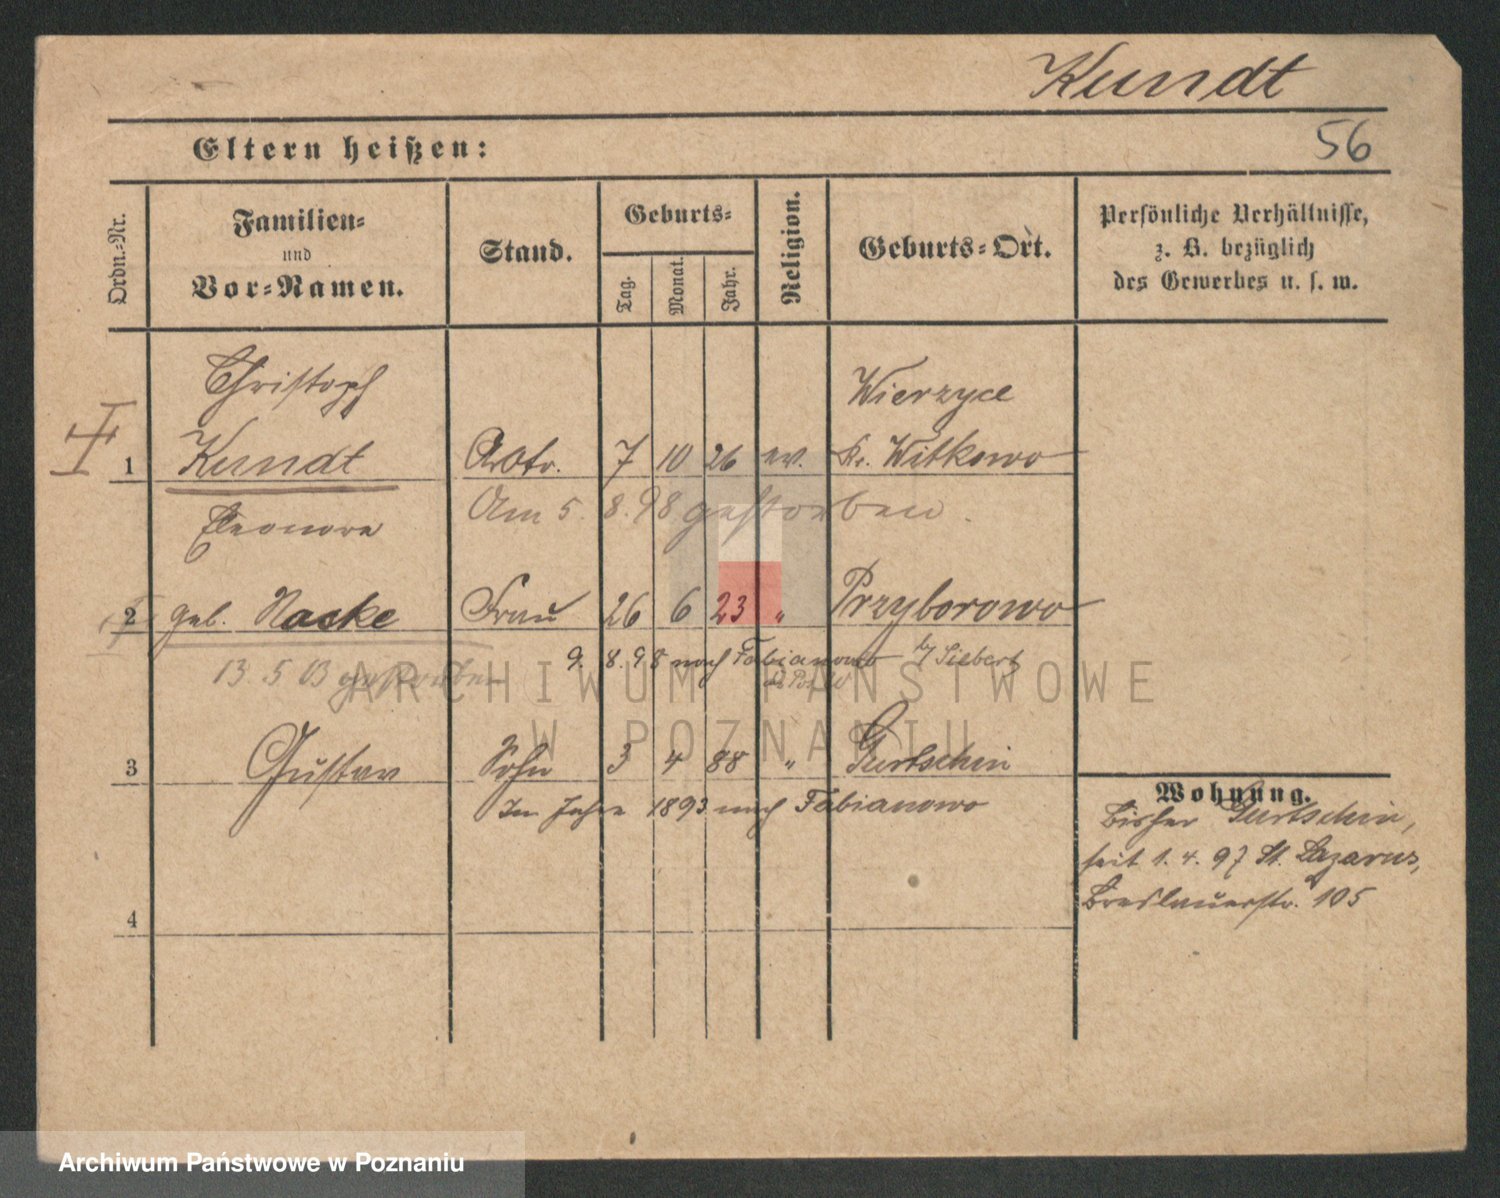 Kundt
56
Eltern heißen:
Ordn.=Nr.
Familien=
und
Vor=Namen.
Stand.
Geburts=
Tag.
Monat.
Jahr.
Religion.
Geburts=Ort.
Persönliche Verhältnisse,
z. B. bezüglich
des Gewerbes u. s. w.
Christoph Wierzyce
1 Kundt Arbtr. 7 10 26 ev. Kr. Witkowo
Am 5. 8. 98 gestorben.
Eleonore
2 geb. Nacke Frau 26 6 23 " Przyborowo
9. 8. 98 nach Fabianowo b/ Siebert
13. 5 03 gestorben
3 Gustav Sohn 3 4 88 " Gurtschin
Im Jahre 1893 nach Fabianowo
4
Wohnung.
Bisher Gurtschin,
seit 1. 4. 97 St. Lazarus,
Breslauerstr. 105
ARCHIWUM PAŃSTWOWE
W POZNANIU
Archiwum Państwowe w Poznaniu